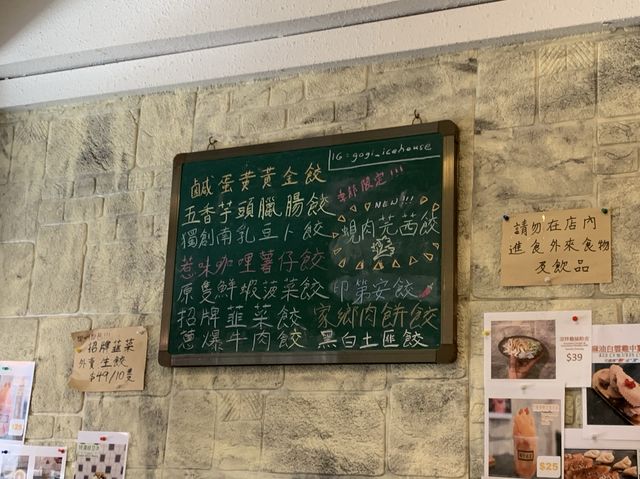 IG: gogi_icehouse
鹹蛋黄黃金餃
五香芋頭臘腸餃
獨創南乳豆卜餃
惹味咖哩薯仔餃
原隻鮮蝦菠菜餃
招牌韮菜餃
蔥爆牛肉餃
季節限定!!!
NEW!!!
蜆肉芫茜餃
印第安餃
家鄉肉餅餃
黑白土匪餃
請勿在店內
進食外來食物
及飲品
招牌韮菜
外賣生餃
$49/10隻
$39
麻油白雲雞中翼
$25